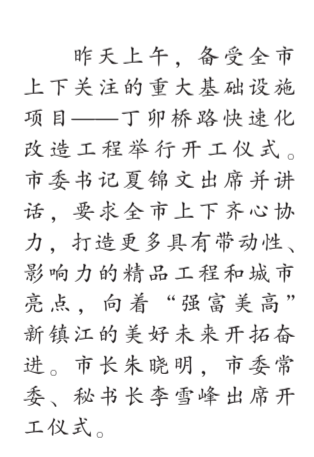 昨天上午，备受全市
上下关注的重大基础设施
项目——丁卯桥路快速化
改造工程举行开工仪式。
市委书记夏锦文出席并讲
话，要求全市上下齐心协
力，打造更多具有带动性、
影响力的精品工程和城市
亮点，向着“强富美高”
新镇江的美好未来开拓奋
进。市长朱晓明，市委常
委、秘书长李雪峰出席开
工仪式。